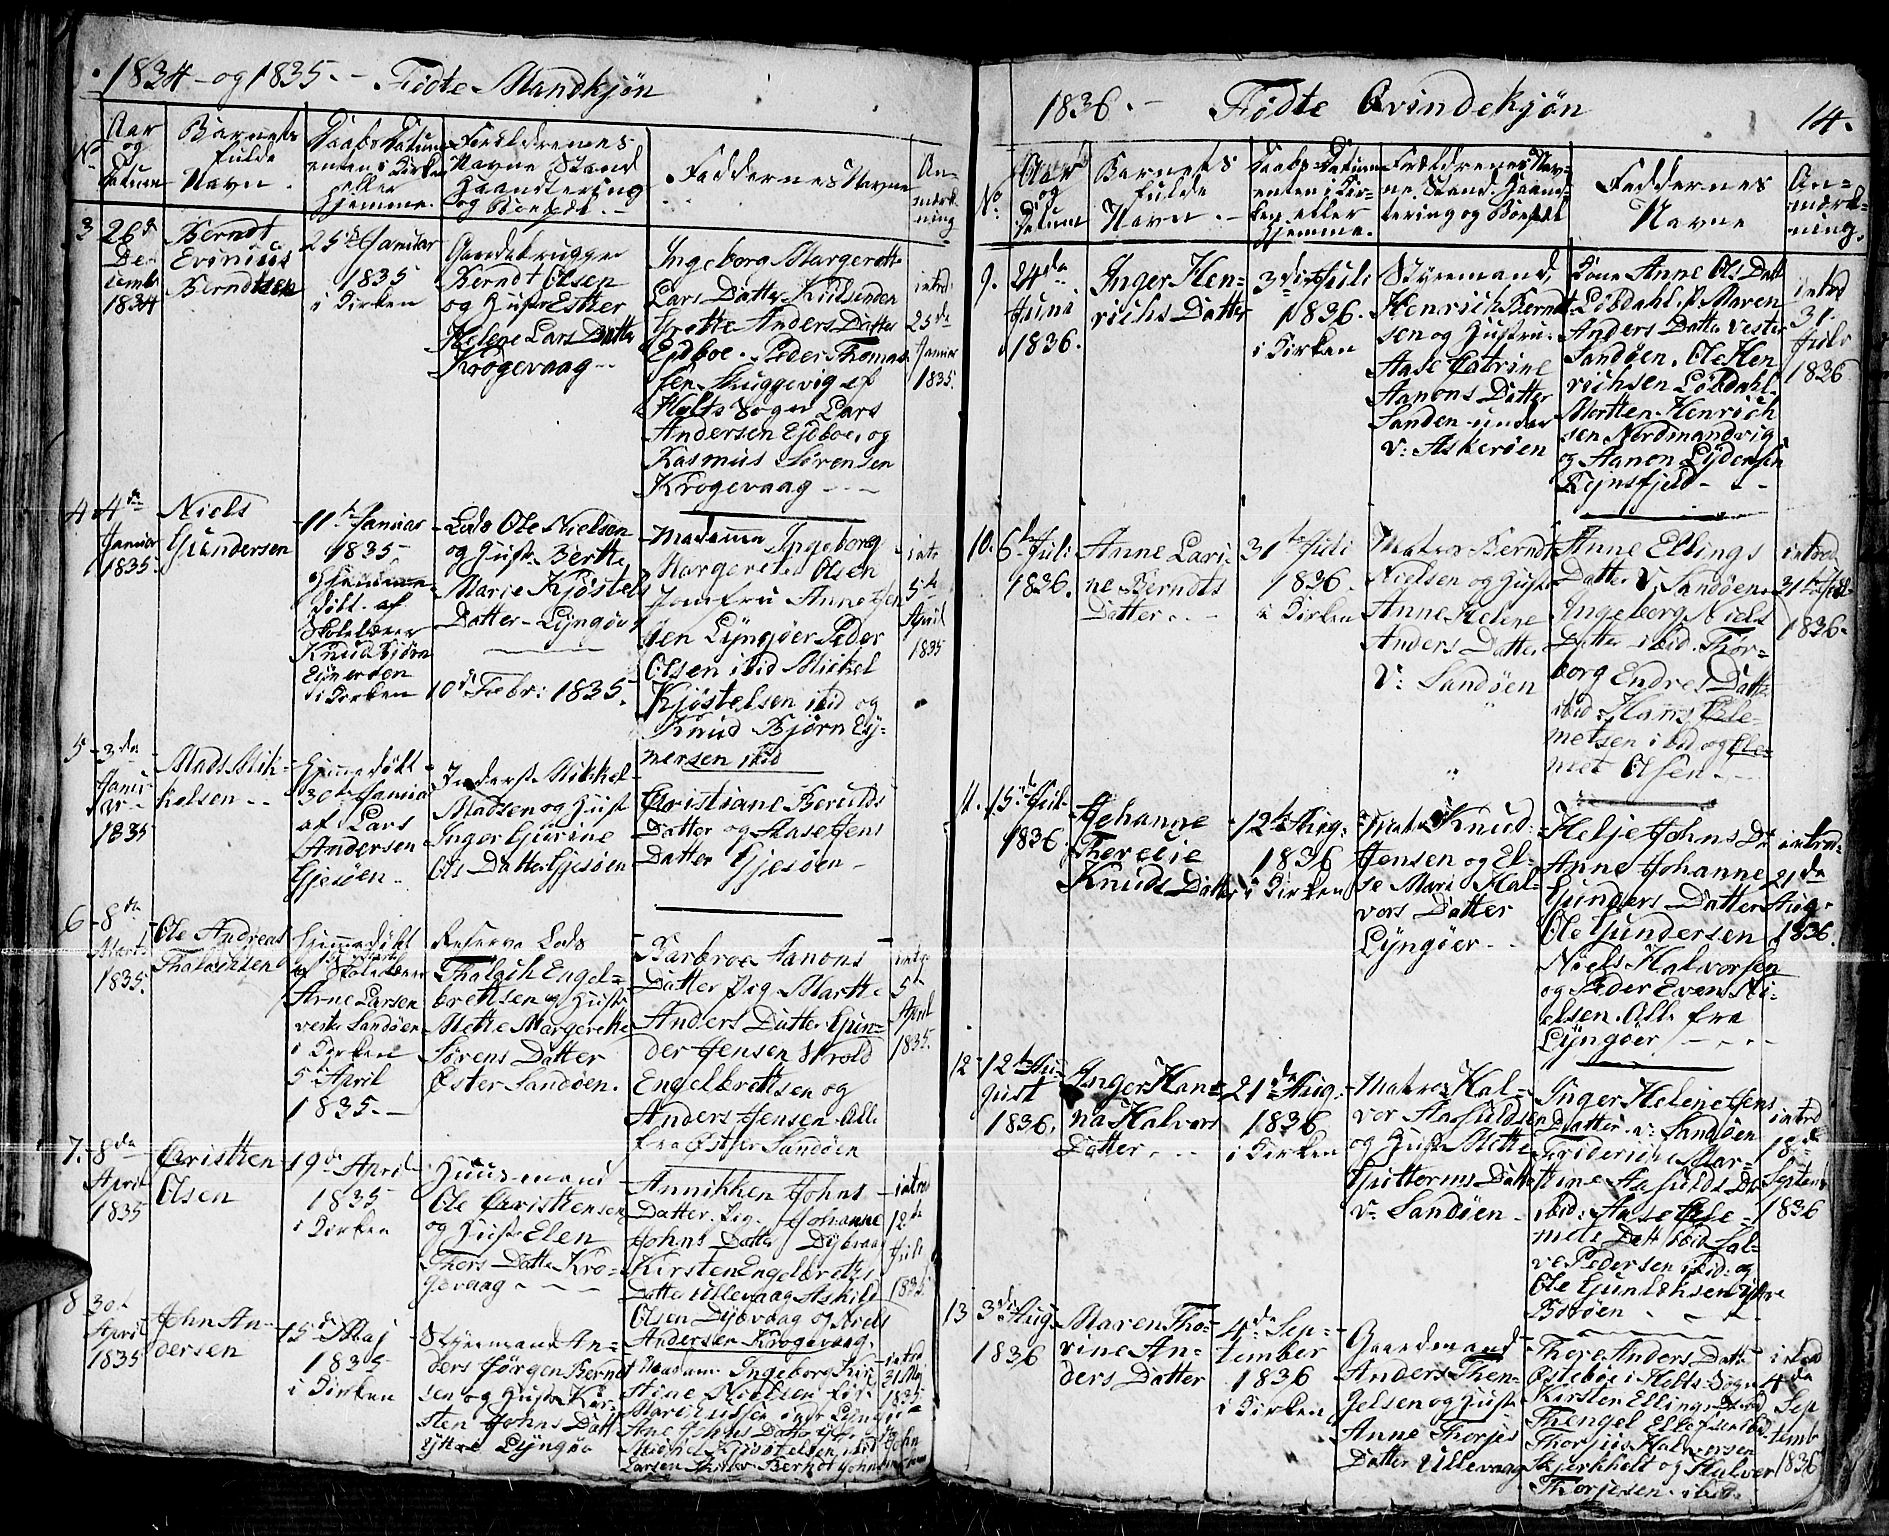 1834 og 1835. Fødte Mandkjøn
No
Aar
og
Datum
Barnets
fulde
Navn.
Daabs Datum
enten i Kirken
eller
Hjemme.
Forældrenes
Navne Stand
Haandtering
og Bopæl.
Faddernes Navne
An-
mærk-
ning
3
26de
De-
cemb
1834
Berndt
Evinius
Berndtsen
25de Januar
1835
i Kirken
Gaardbruger
Berndt Olsen
og Hustr Ester
Helene Lars Datter
Krogevaag
Ingeborg Margerette
Lars Datter
Grette Anders Datter
Ejdboe. Peder Thomas-
sen Skuggevig af
Holts Sogn Lars
Andersen Ejdboe, og
Rasmus Sørensen
Krogevaag
introd
25de
Januar
1835.
4
4de
Januar
1835.
Niels
Gundersen
11te Januar
1835
Hjemme
døbt af
Skolelærer
Knud Biørn
Ejnersen
i Kirken
Lods Ole Nielsen
og Hustr Berthe
Marie Kjøstels
Datter Lyngøer
10de Febr: 1835.
Madamme Ingeborg
Margerete Olsen
Jomfru Anne Jen
sen Lyngøer Peder
Olsen ibid Mickel
Kjøstelsen ibid og
Knud Bjørn Ej-
nersen ibid
intr
5te
April
1835
5
3de
Janu-
ar
1835
Mads Mik-
kelsen
Hjemmedøbt
30te Januar
af Lars
Andersen
Gjesøen
Inderst Mikkel
Madsen og Hustr
Inger Gurine
Ols Datter Gjesøen
Christiane Berulds
Datter og Aase Jens
Datter Gjesøen
6
8de
Marts
1835.
Ole Andreas
Thalachsen
Hjemmedøbt
af Skolelærer
Arne Larsen
vestr Sandøen
i Kirken
5te April
1835.
Reserve Lods
Thalach Engel-
brethsen og Hustr
Mette Margerethe
Sørens Datter
Øster Sandøen.
Barbroe Aanons
Datter Pig Marthe
Anders Datter Gun-
der Jensen Wrold
Engelbrethsen og
Anders Jensen Alle
fra Øster Sandøen
intr.
5te
April
1835.
7.
8de
April
1835
Christen
Olsen
19de April
1835
i Kirken
Huusmand
Ole Christensen
og Hustr Elen
Thors Datter Kro-
gevaag
Annikken Johns
Datter. Pig. Johanne
Johns Datter Dybvaag
Kirsten Engelbreths
Datter Ullevaag Askild
Olsen Dybvaag og Niels
Andersen Krogevaag.
introd
12te
Juli
1835
8
30te
April
1835
John An-
dersen
15de Maj
1835
i Kirken
Styremand An-
ders Jørgen Bernt
sen og Hustr Kir-
sten Johns Datt
yttre Lyngøe
Madam Ingeborg Kir
stine Nielsen
introd
31 Maj
1835
1836. Fødte Qvindekjøn
14.
No
Aar
og
Datum
Barnets
fulde
Navn.
Daabs-Datum
enten i Kir-
ken eller
Hjemme.
Forældrenes Nav-
ne Stand. Haand-
tering og Bopæl
Faddernes
Navne
An-
mærk-
ning.
9.
24de
Juni
1836.
Inger Hen-
richs Datter
3die Juli
1836.
i Kirken
Styremand,
Henrich Bernt
sen og Hustru
Aase Catrine
Aanons Datter
Sanden under
V: Askerøen
Kone Anne Ols Datt
Løbdahl. P. Maren
Anders Datter Vester
Sandøen. Ole Hen
richsen Løbdahl.
Mortten Henrich
sen Nordmandvig
og Aanon Lydersen
introd
31
Juli
1836
10.
6te Juli
1836.
Anne Lari-
ne Berndts
Datter
31te Juli
1836.
i Kirken
Matros Berndt
Nielsen og Hustr
Anne Helene
Anders Datter
V: Sandøen
Anne Ellings
Datter V. Sandøen
Ingeborg Niels
Datter ibid. Thor-
borg Endres Datter
ibid. Hans Cle-
metsen ibid og Cle-
met Olsen
introd
31te Juli
1836.
11.
15de Juli
1836.
Johanne
Therecie
Knuds Datter
12te Aug.
1836
i Kirken
Matr Knud
Jensen og El-
se Mari Hal-
vors Datter
Lyngøer
Helje Johns Dr
Anne Johanne
Gunders Datter
Ole Gundersen
Niels Halvorsen
og Peder Even Ni-
elsen. Alle fra
Lyngøer
introd
21de
Aug.
1836.
12
12te Au-
gust
1836.
Inger Han-
na Halvors
Datter
21de Aug.
1836
i Kirken
Matros Hal-
vor Aasuldsen
og Hustr Mette
Guttorms Datter
V. Sandøen
Inger Helene Jens
Datter. v: Sandøen
Friderine Mar-
tine Aasulds Dr
ibid. Aase Cle-
mets Datt ibid Sal-
ve Pedersen ibid. og
Ole Gunlehsen yttre
Borøen
introd
18de
Septemb
1836
13
3die Aug.
1836
Maren Tho-
rine An-
ders Datter
4de Sep-
tember
1836
i Kirken
Gaardmand
Anders Then-
gelsen og Hustr
Anne Thorjes
Datter Ullevaag
Thore Anders Datt
Østeboe i Holts Sogn
Kirsten Ellings Dr ibid
Thengel Ellefsen ibid
Thorjus Halvorsen
Skjerkholt og Halvor
Thorjesen ibid.
introd
4de
Sep
temb
1836